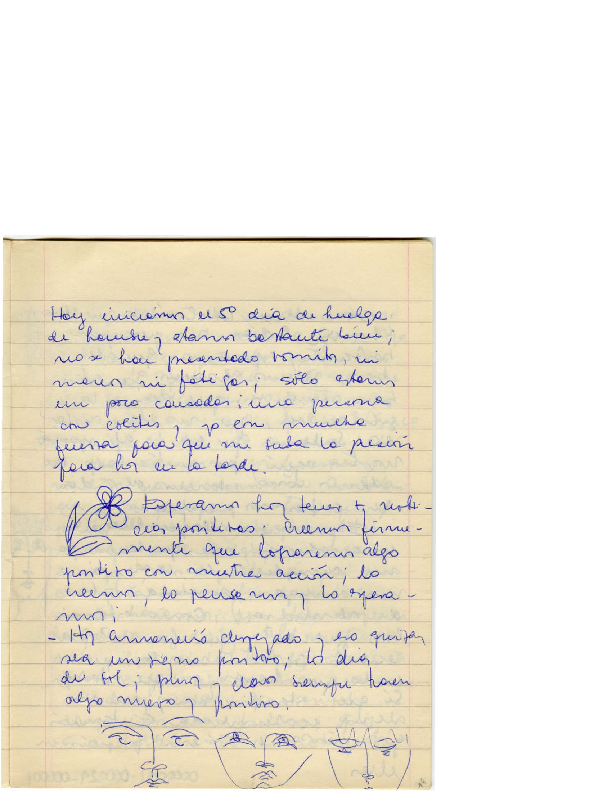 Hoy iniciamos el 5º día de huelga
de hambre y estamos bastante bien;
no se han presentado vomitos, ni
mareos ni fátigas; sólo estamos
un poco cansadas; una persona
con colitis, yo con mucha
fuerza para que me suba la presión
para hoy en la tarde.
Esperamos hoy tener noti-
cias positivas; creemos firme-
mente que lograremos algo
positivo con nuestra acción; lo
creemos, lo pensamos y lo espera-
mos;
- Hoy amaneció despejado y eso quizas
sea un signo positivo, los dias
de sol, puros y claros siempre traen
algo nuevo y positivo.